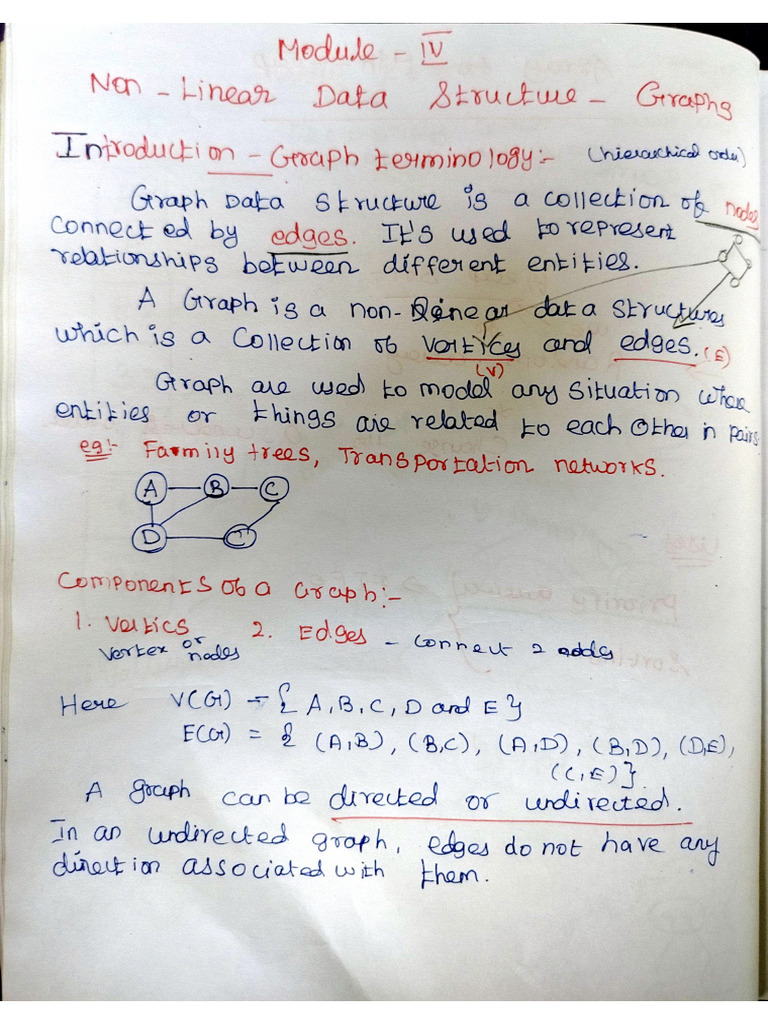 Module - IV
Non - Linear Data Structure - Graphs
Introduction - Graph terminology:- (hierarchical order)
Graph Data structure is a collection of nodes
connected by edges. It's used to represent
relationships between different entities.
A Graph is a non-linear data structures
which is a collection of vertices and edges. (E)
(V)
Graph are used to model any situation where
entities or things are related to each other in pairs.
eg:- Farmily trees, Transportation networks.
A B C
D C
Components of a Graph:-
1. Vertics 2. Edges - connect 2
vertex or nodes
Here V(G) = { A, B, C, D and E }
E(G) = { (A,B), (B,C), (A,D), (B,D), (D,E),
(C,E) }.
A graph can be directed or undirected.
In an undirected graph, edges do not have any
direction associated with them.